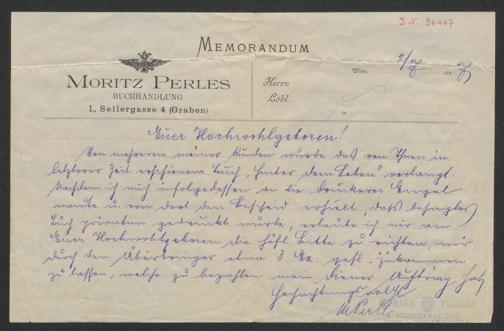 I.N. 96447
MEMORANDUM
MORITZ PERLES
BUCHHANDLUNG
I., Seilergasse 4 (Graben)
Wien,
Herrn
Löbl.
in
Euer Hochwohlgeboren!
Von mehreren meiner Kunden wurde das von Ihnen in
letzterer Zeit erschienene Buch „Hinter dem Leben" verlangt.
Nachdem ich mich infolgedessen an die Druckerei Engel
wandte u. von dort den Bescheid erhielt, daß besagtes
Buch privatim gedruckt wurde, erlaube ich mir an
Euer Hochwohlgeboren die höfl. Bitte zu richten, mir
durch den Überbringer etwa 3 Ex. gefl. zukommen
zu lassen, welche zu bezahlen mein Diener Auftrag hat.
Hochachtungsvollst
MPerles
MORITZ PERLES
BUCHHANDLUNG